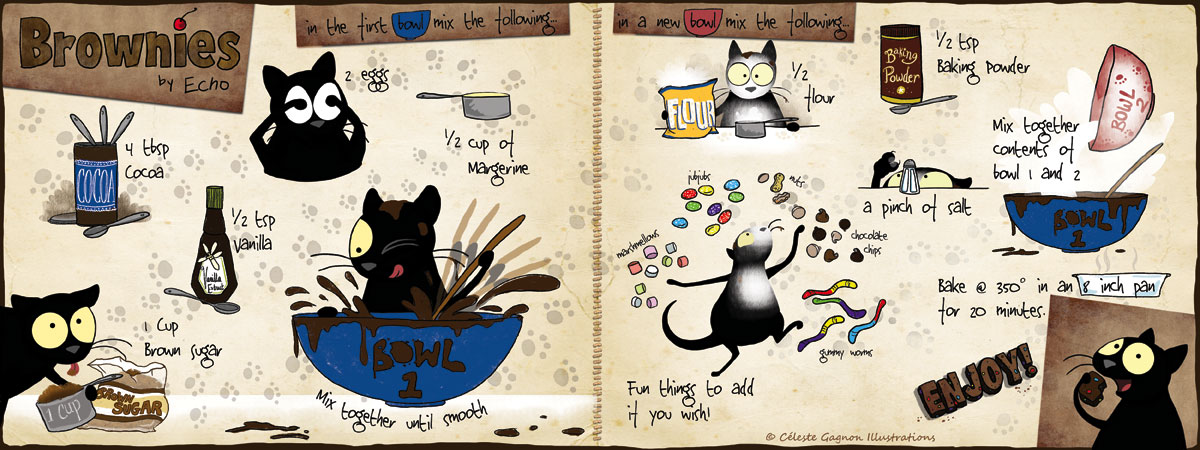 Brownies
by Echo
in the first bowl mix the following...
2 eggs
4 tbsp
Cocoa
COCOA
1/2 cup of
Margerine
1/2 tsp
Vanilla
Vanilla
Extract
1 Cup
Brown sugar
1 CUP
BROWN
SUGAR
BOWL
1
Mix together until smooth
in a new bowl mix the following...
FLOUR
1/2
flour
Baking
Powder
1/2 tsp
Baking Powder
a pinch of salt
BOWL
2
Mix together
contents of
bowl 1 and 2
BOWL
1
jubjubs
nuts
marshmellows
chocolate
chips
gummy worms
Fun things to add
if you wish!
Bake @ 350° in an 8 inch pan
for 20 minutes.
ENJOY!
© Céleste Gagnon Illustrations